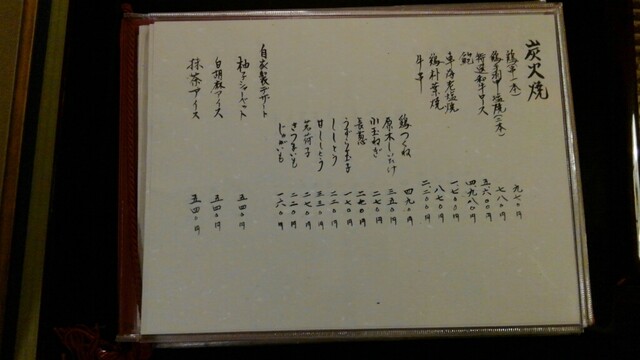 炭火焼
鶏 (一本) 九七〇円
鶏手羽中塩焼 (二本) 七八〇円
特選和牛ロース 五六〇〇円
鮑 四九八〇円
車海老塩焼 一七〇〇円
鶏朴葉焼 八七〇円
牛 二二〇〇円
鶏つくね 四九〇円
原木しいたけ 三五〇円
小玉ねぎ 二七〇円
長葱 二七〇円
うずら玉子 一七〇円
ししとう 二二〇円
甘ししとう 三三〇円
茗荷子 二七〇円
さつまいも 二二〇円
じゃがいも 一六〇円
自家製デザート
柚子シャーベット 五四〇円
白胡麻アイス 五四〇円
抹茶アイス 五四〇円